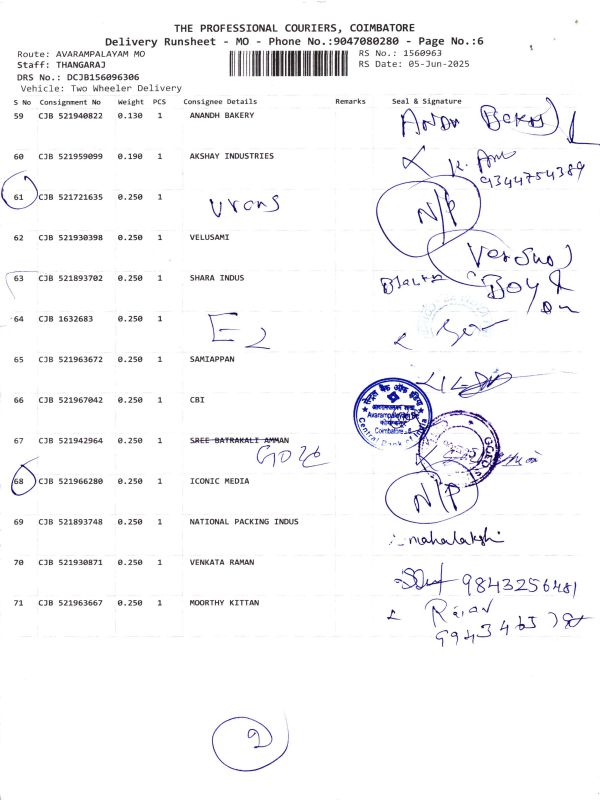 THE PROFESSIONAL COURIERS, COIMBATORE
Delivery Runsheet - MO - Phone No.:9047080280 - Page No.:6
Route: AVARAMPALAYAM MO
RS No.: 1560963
Staff: THANGARAJ
RS Date: 05-Jun-2025
DRS No.: DCJB156096306
Vehicle: Two Wheeler Delivery
S No Consignment No Weight PCS Consignee Details Remarks Seal & Signature
59 CJB 521940822 0.130 1 ANANDH BAKERY
60 CJB 521959099 0.190 1 AKSHAY INDUSTRIES
9344754389
61 CJB 521721635 0.250 1 N/P
62 CJB 521930398 0.250 1 VELUSAMI
63 CJB 521893702 0.250 1 SHARA INDUS
64 CJB 1632683 0.250 1 E2
65 CJB 521963672 0.250 1 SAMIAPPAN
66 CJB 521967042 0.250 1 CBI
Central Bank of India
67 CJB 521942964 0.250 1 SREE BATRAKALI AMMAN
68 CJB 521966280 0.250 1 ICONIC MEDIA N/P
69 CJB 521893748 0.250 1 NATIONAL PACKING INDUS mahalakshi
70 CJB 521930871 0.250 1 VENKATA RAMAN 9843256481
71 CJB 521963667 0.250 1 MOORTHY KITTAN
2